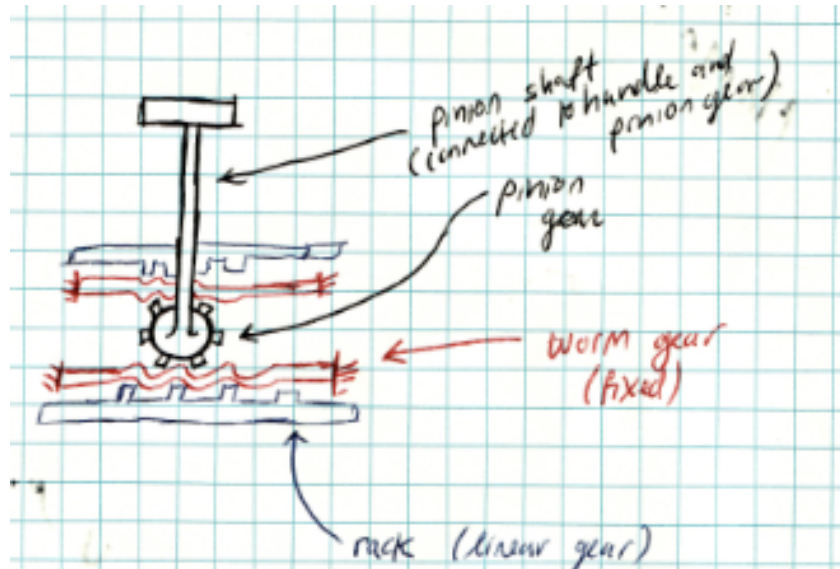 pinion shaft
(connected to handle and
pinion gear)
pinion
gear
worm gear
(fixed)
rack (linear gear)